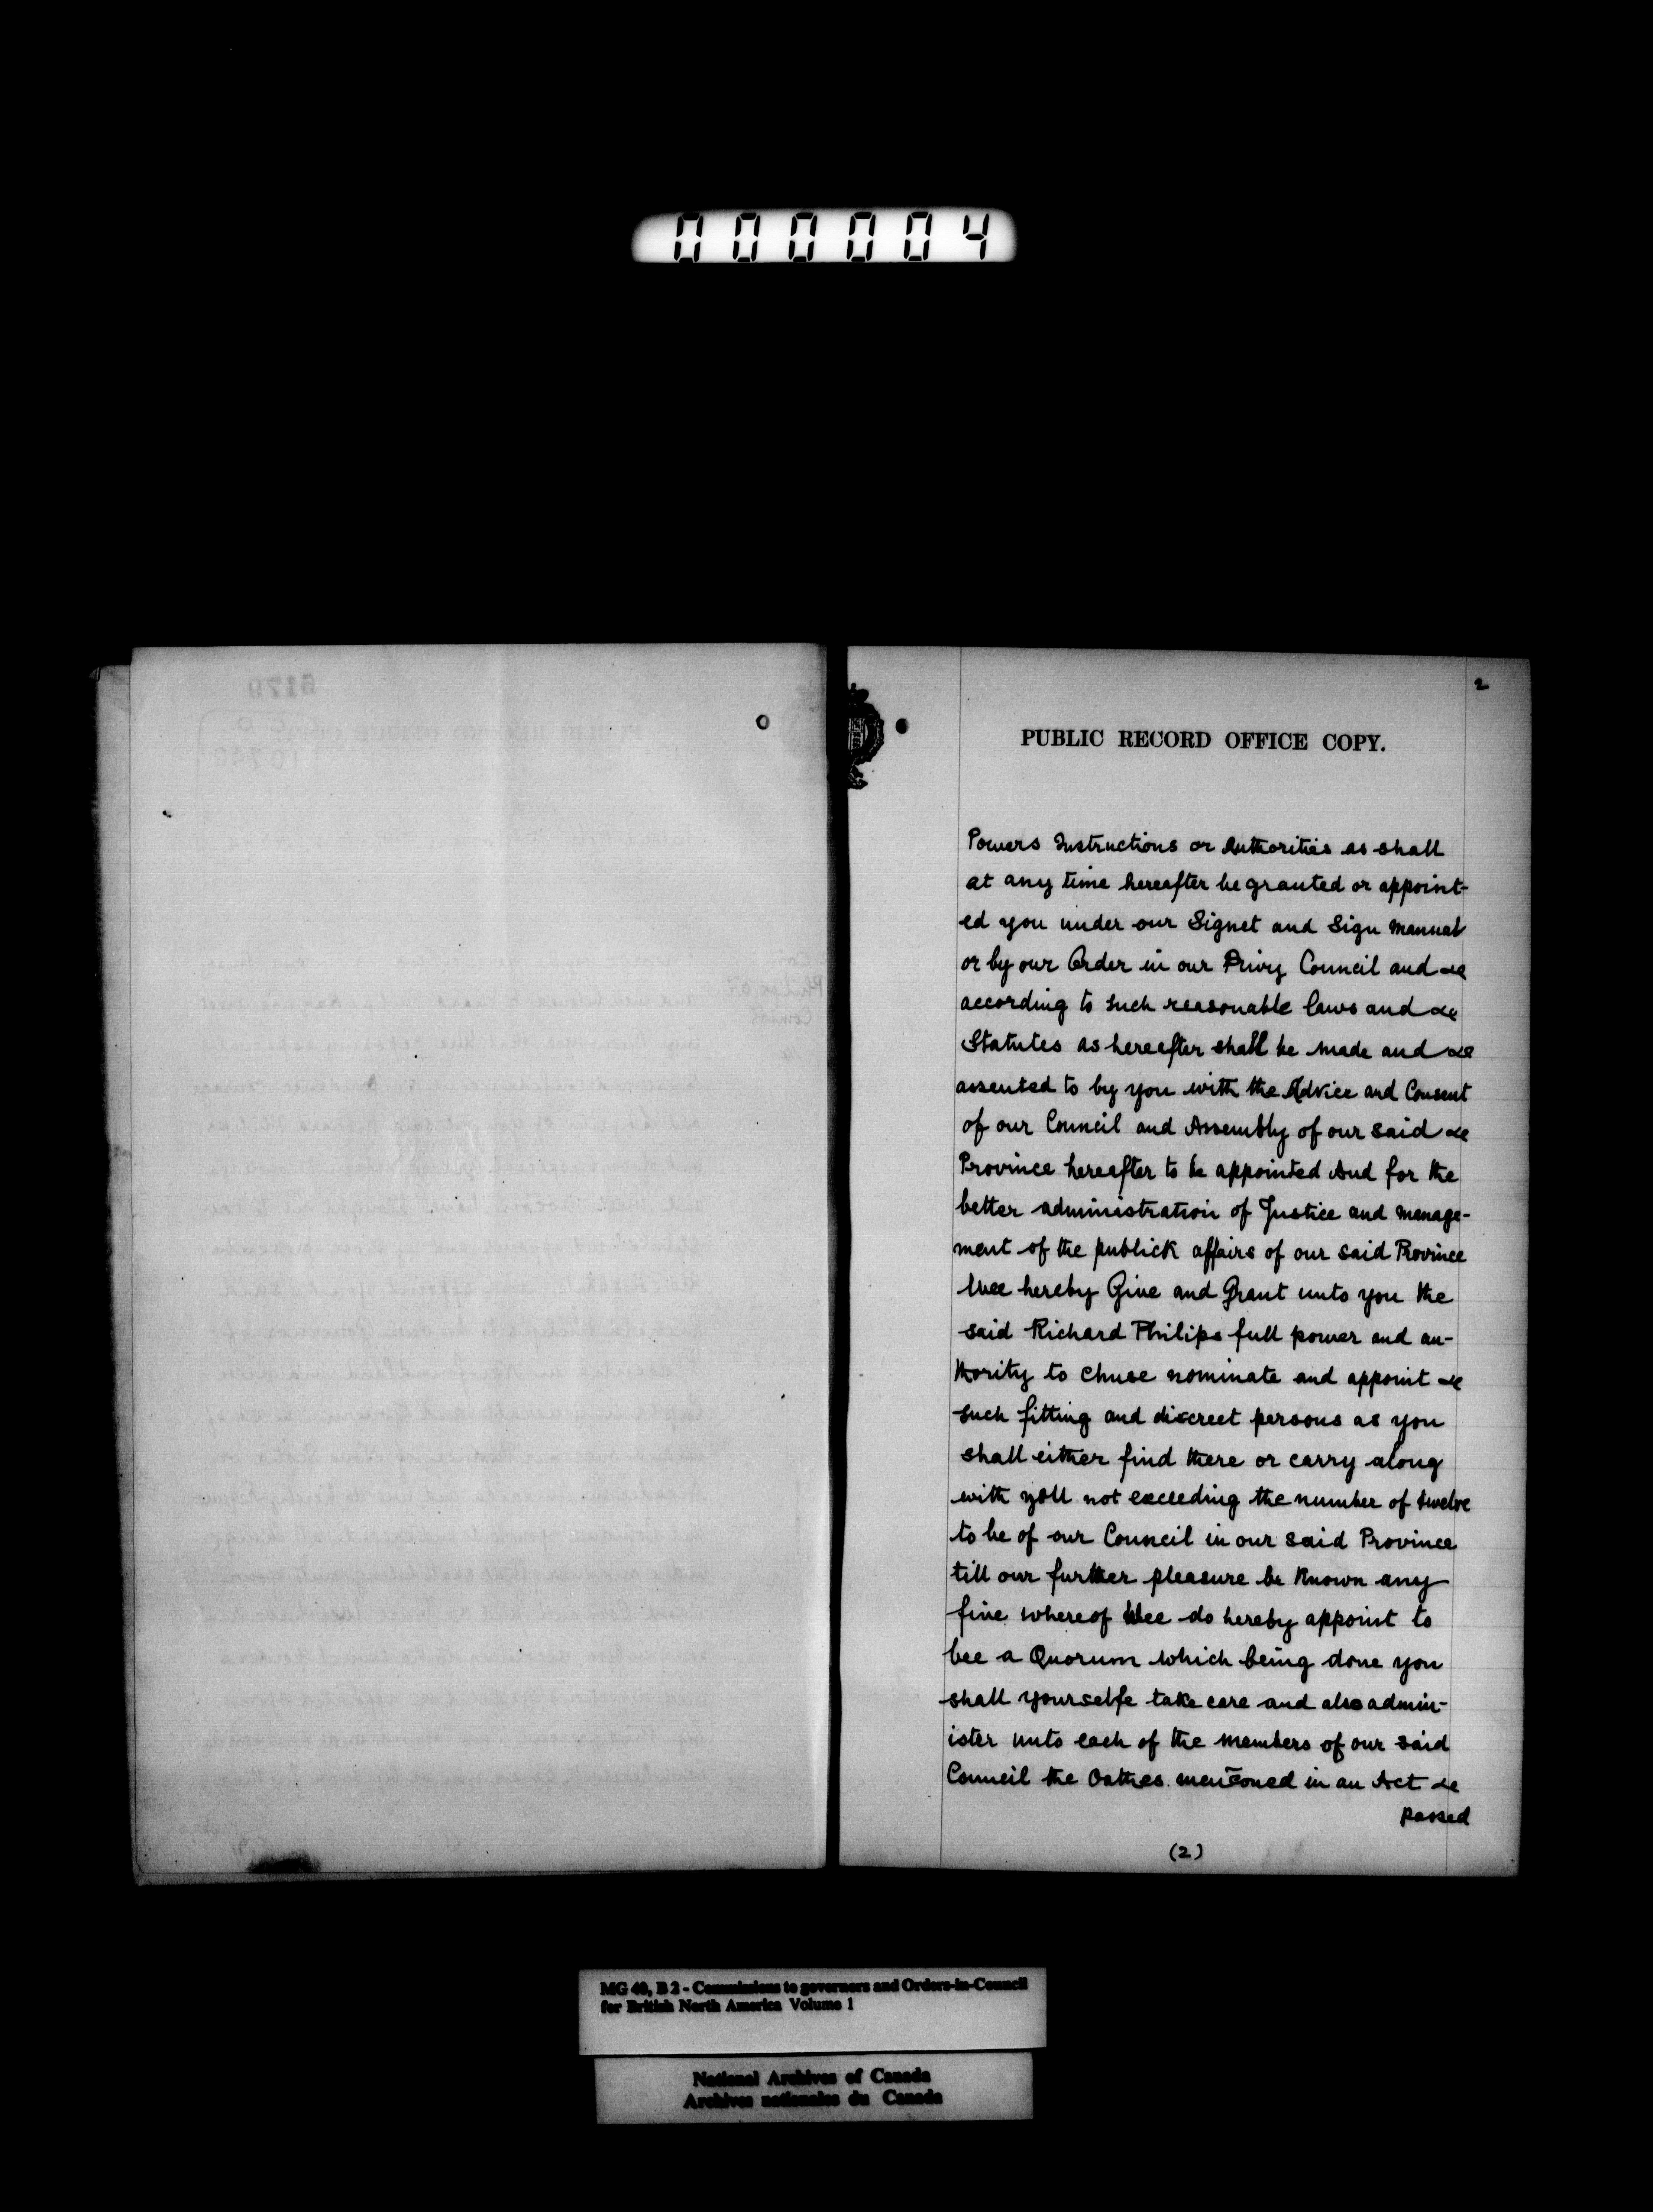 000004
2
PUBLIC RECORD OFFICE COPY.
Powers Instructions or Authorities as shall
at any time hereafter be granted or appoint-
ed you under our Signet and Sign Manual
or by our Order in our Privy Council and
according to such reasonable laws and
Statutes as hereafter shall be made and
assented to by you with the Advice and Consent
of our Council and Assembly of our said
Province hereafter to be appointed And for the
better administration of Justice and manage-
ment of the publick affairs of our said Province
Wee hereby Give and Grant unto you the
said Richard Philips full power and au-
thority to chuse nominate and appoint
such fitting and discreet persons as you
shall either find there or carry along
with you not exceeding the number of twelve
to be of our Council in our said Province
till our further pleasure be known any
five whereof Wee do hereby appoint to
bee a Quorum which being done you
shall yourselfe take care and also admin-
ister unto each of the members of our said
Council the Oathes menc̄oned in an Act
passed
(2)
MG 40, B 2 - Commissions to governors and Orders-in-Council
for British North America Volume 1
National Archives of Canada
Archives nationales du Canada